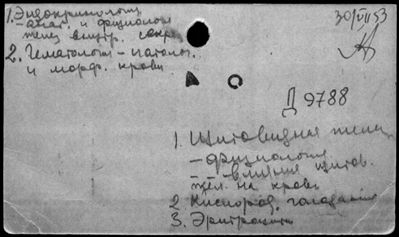 1. Эндокринология
- анат. и физиология
желез внутр. секр.
2. Гематология - патолог.
и морф. крови
30/VII 53
Д 9788
1. Щитовидная железа
- физиология
- - влияние щитов.
жел. на кровь
2. Кислород. голодание
3. Эритроциты